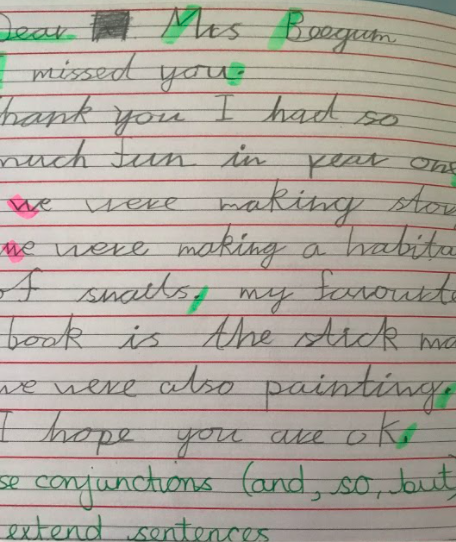 Dear Mrs Beegum
I missed you.
hank you I had so
much fun in year one
we were making stor
we were making a habita
of snails, my favourite
book is the stick ma
we were also painting,
I hope you are ok,
se conjunctions (and, so, but)
extend sentences